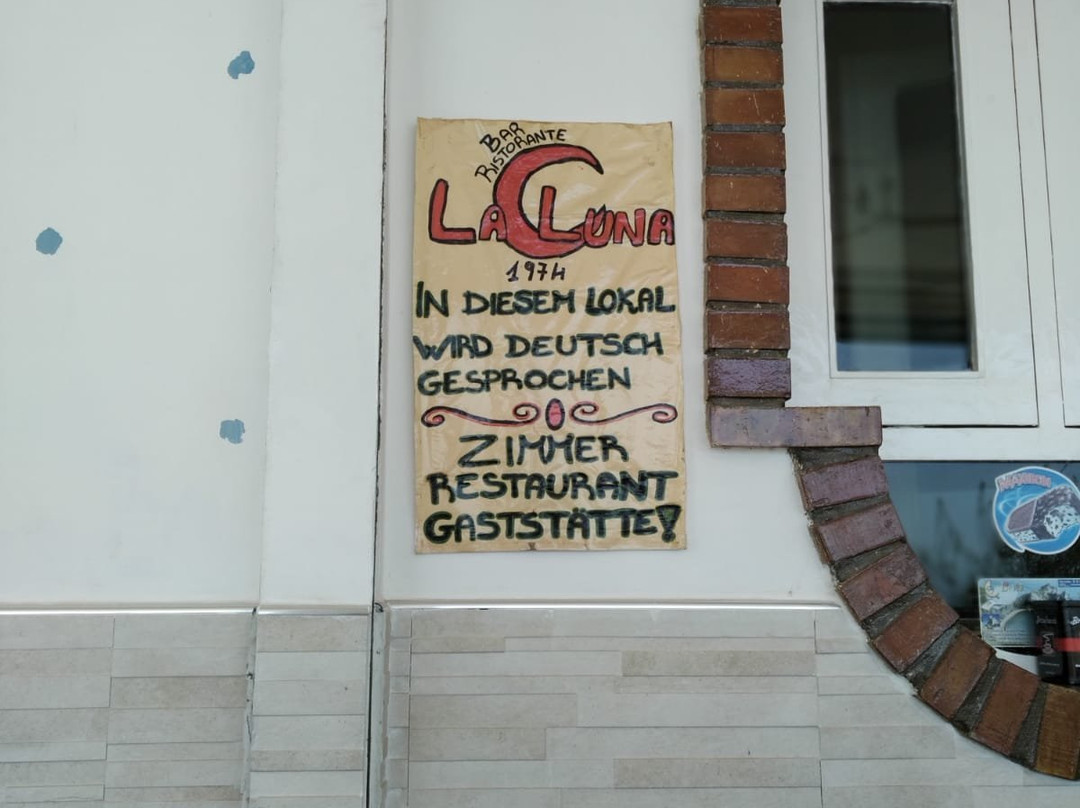 BAR
RISTORANTE
LA LUNA
1974
IN DIESEM LOKAL
WIRD DEUTSCH
GESPROCHEN
ZIMMER
RESTAURANT
GASTSTÄTTE!